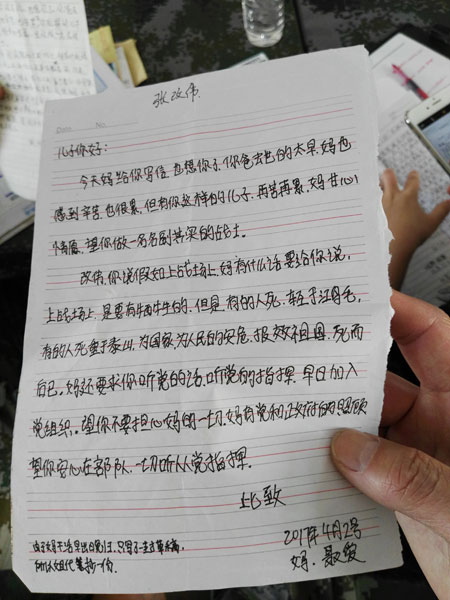 张改伟
Date. No.
儿子你好：
今天妈给你写信，也想你了，你爸出世的太早，妈也
感到辛苦，也很累，但有你这样的儿子，再苦再累，妈甘心
情愿，望你做一名名副其实的战士。
改伟，你说假如上战场上，妈有什么话要给你说，
上战场上，是要有牺牲的，但是，有的人死，轻于江毛，
有的人死重于泰山，为国家，为人民的安危，报效祖国，死而
自己，妈还要求你听党的话，听党的指挥，早日加入
党组织。望你不要担心妈的一切，妈有党和政府的照顾
望你安心在部队，一切听从党指挥。
此致
2017年4月2号
妈：聂爱
由于妈
所以大姐代笔抄一份。